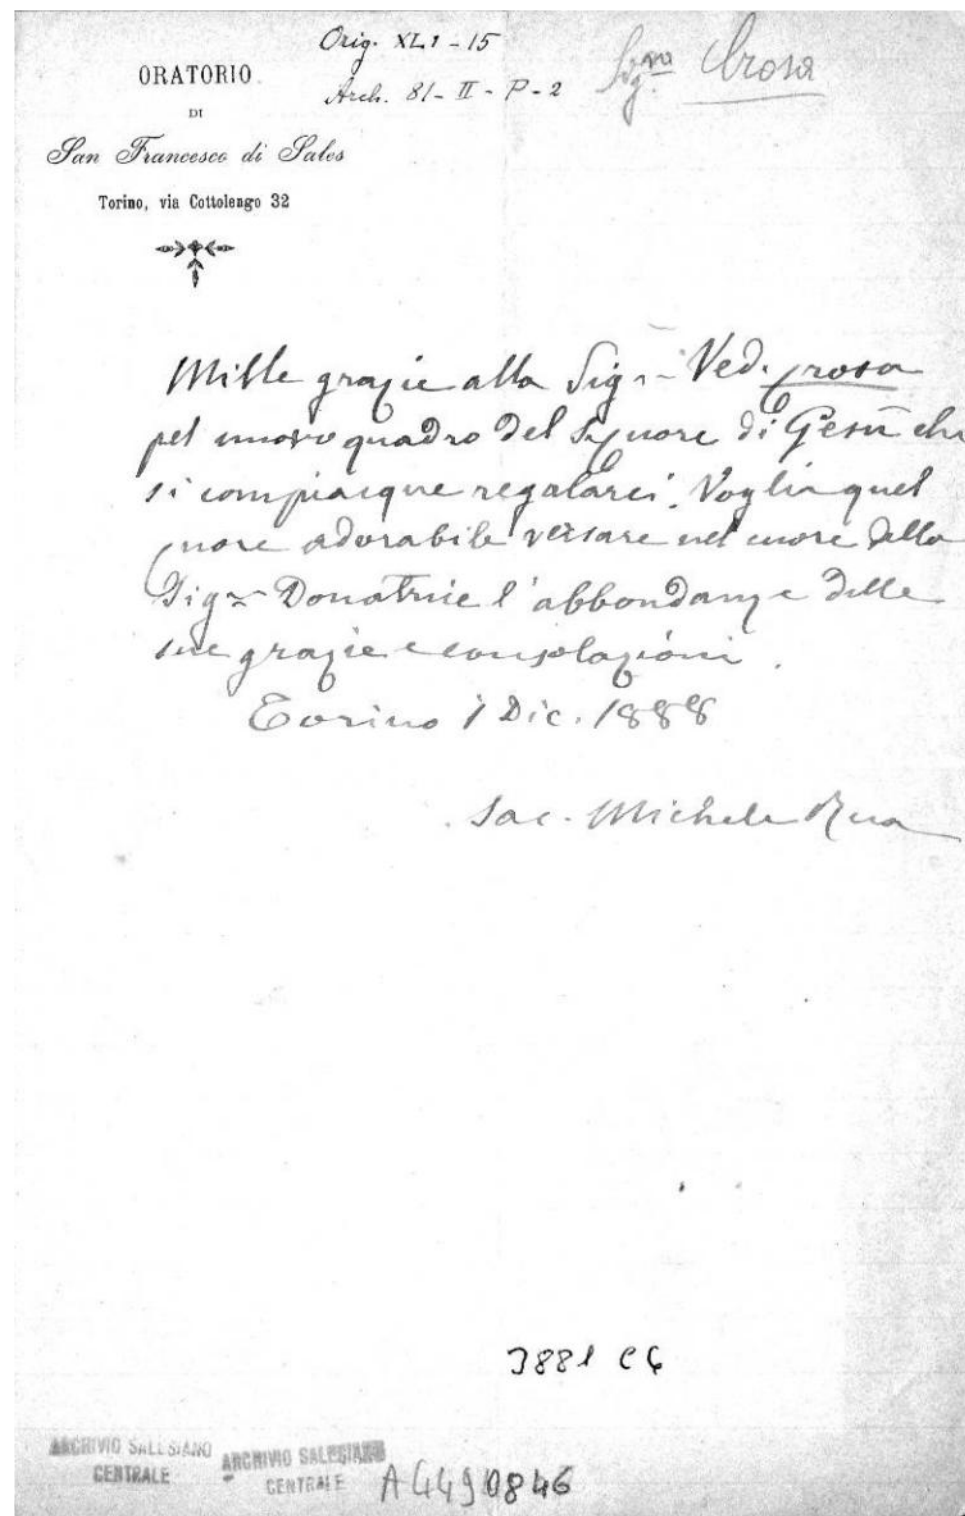 Orig. XL1 - 15
Arch. 81 - II - P - 2
Sig.ra Crosa
ORATORIO
DI
San Francesco di Sales
Torino, via Cottolengo 32
Mille grazie alla Sig.ra Ved. Crosa
pel nuovo quadro del S. Cuore di Gesù che
si compiacque regalarci. Voglia quel
Cuore adorabile versare nel cuore della
Sig.ra Donatrice l'abbondanza delle
sue grazie e consolazioni.
Torino 1 Dic. 1888
Sac. Michele Rua
3881 C6
ARCHIVIO SALESIANO
CENTRALE
ARCHIVIO SALESIANO
CENTRALE
A4490846